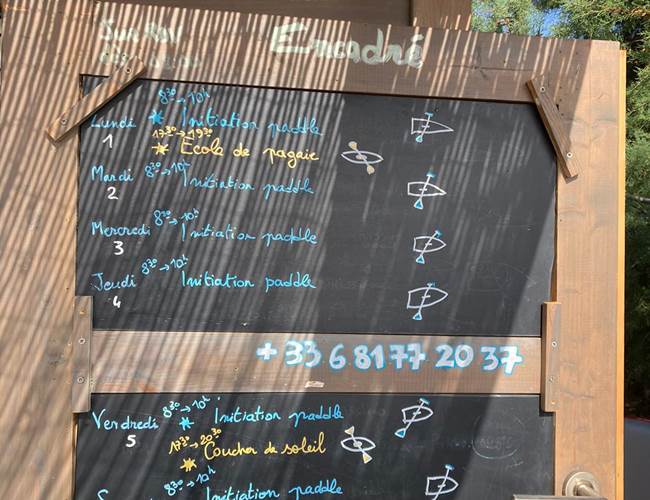 Encadré
8h30 → 10h
Lundi Initiation paddle
1 17h30 → 19h30
Ecole de pagaie
Mardi 8h30 → 10h Initiation paddle
2
Mercredi 8h30 → 10h Initiation paddle
3
Jeudi 8h30 → 10h Initiation paddle
4
+ 33 6 81 77 20 37
Vendredi 8h30 → 10h Initiation paddle
5 17h30 → 20h30
Coucher de soleil
8h30 → 10h
Initiation paddle